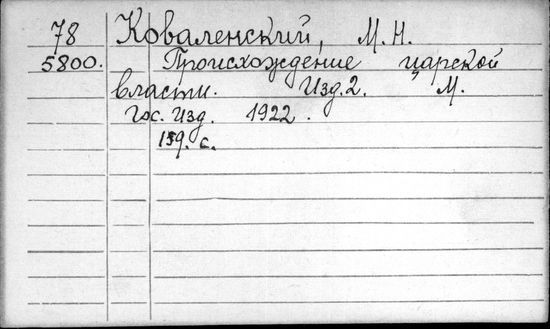 78 Коваленский, М.Н.
5800. Происхождение царской
власти. Изд.2. М.
Гос. Изд. 1922.
159. с.